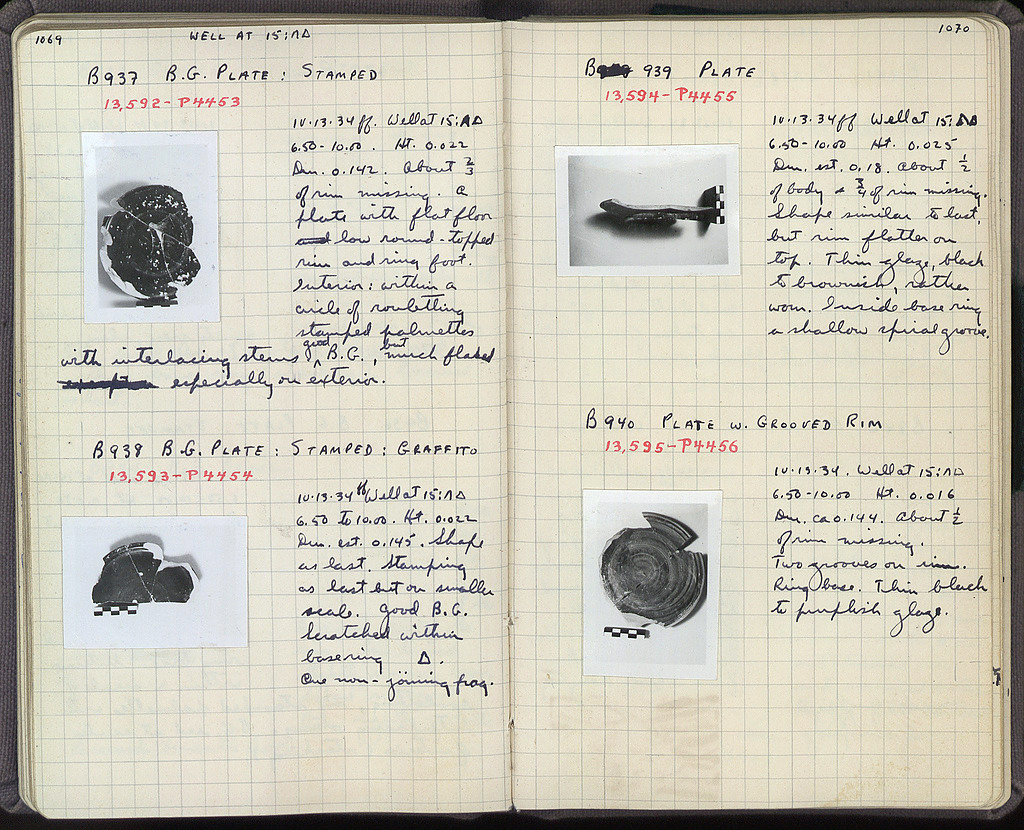 1069
WELL AT 15:ΛΔ
B937 B.G. PLATE : STAMPED
13,592-P4453
IV.13.34 ff. Well at 15:ΛΔ
6.50-10.00. Ht. 0.022
Dm. 0.142. About 2/3
of rim missing. A
plate with flat floor
low round-topped
rim and ring foot.
Interior: within a
circle of rouletting
stamped palmettes
with interlacing stems. good B.G., but much flaked
especially on exterior.
B938 B.G. PLATE : STAMPED : GRAFFITO
13,593-P4454
IV.13.34 ff Well at 15:ΛΔ
6.50 to 10.00. Ht. 0.022
Dm. est. 0.145. Shape
as last. Stamping
as last but on smaller
scale. Good B.G.
Scratched within
base ring Δ.
One non-joining frag.
1070
B 939 PLATE
13,594-P4455
IV.13.34 ff Well at 15:ΛΔ
6.50-10.00 Ht. 0.025
Dm. est. 0.18. About 1/2
of body & 3/4 of rim missing.
Shape similar to last,
but rim flatter on
top. Thin glaze, black
to brownish, rather
worn. Inside base ring
a shallow spiral groove.
B940 PLATE W. GROOVED RIM
13,595-P4456
IV.13.34. Well at 15:ΛΔ
6.50-10.00 Ht. 0.016
Dm. ca 0.144. About 1/2
of rim missing.
Two grooves on rim.
Ring base. Thin black
to purplish glaze.